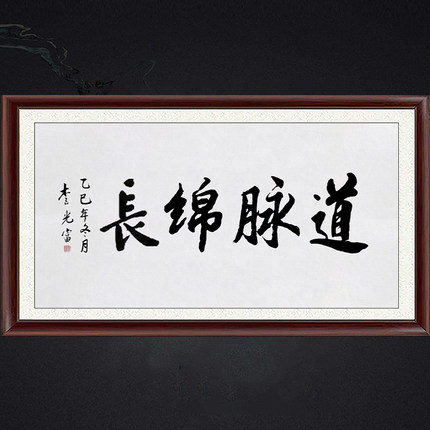 道脉绵長
乙巳年冬月
李光富